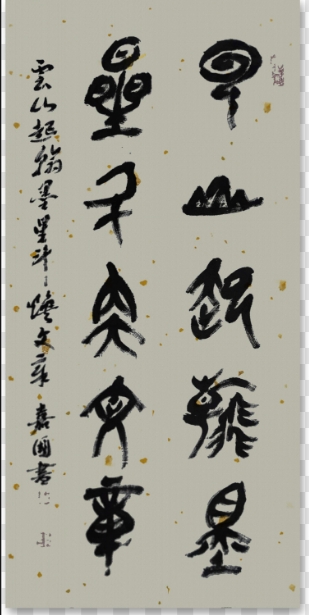 云山起翰墨
星斗奐文章
雲山起翰墨星斗煥文章 嘉國書